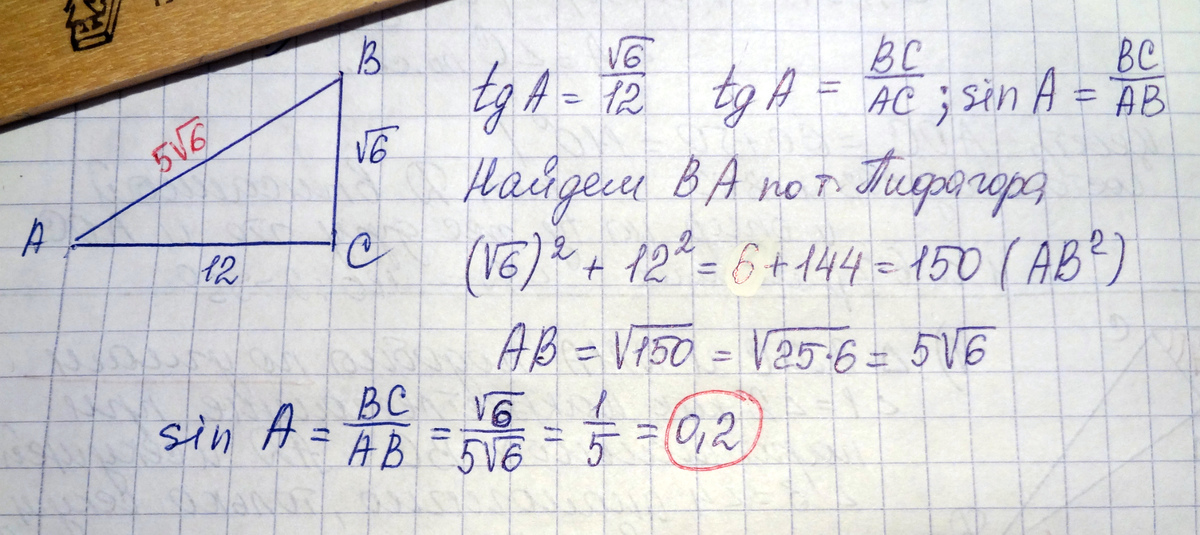 B
5√6
√6
A
C
12
tg A = √6/12 tg A = BC/AC ; sin A = BC/AB
Найдем ВА по т. Пифагора
(√6)² + 12² = 6 + 144 = 150 (AB²)
AB = √150 = √25·6 = 5√6
sin A = BC/AB = √6/5√6 = 1/5 = 0,2